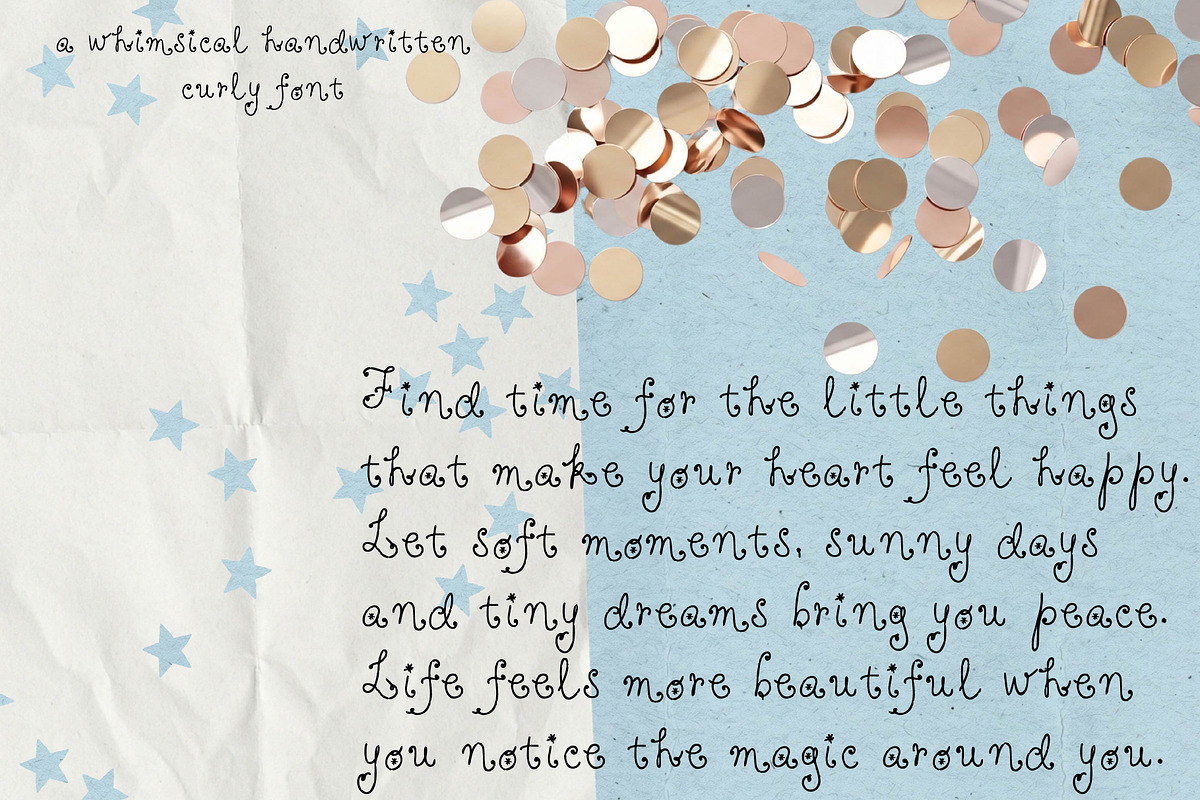 a whimsical handwritten
curly font
Find time for the little things
that make your heart feel happy.
Let soft moments, sunny days
and tiny dreams bring you peace.
Life feels more beautiful when
you notice the magic around you.